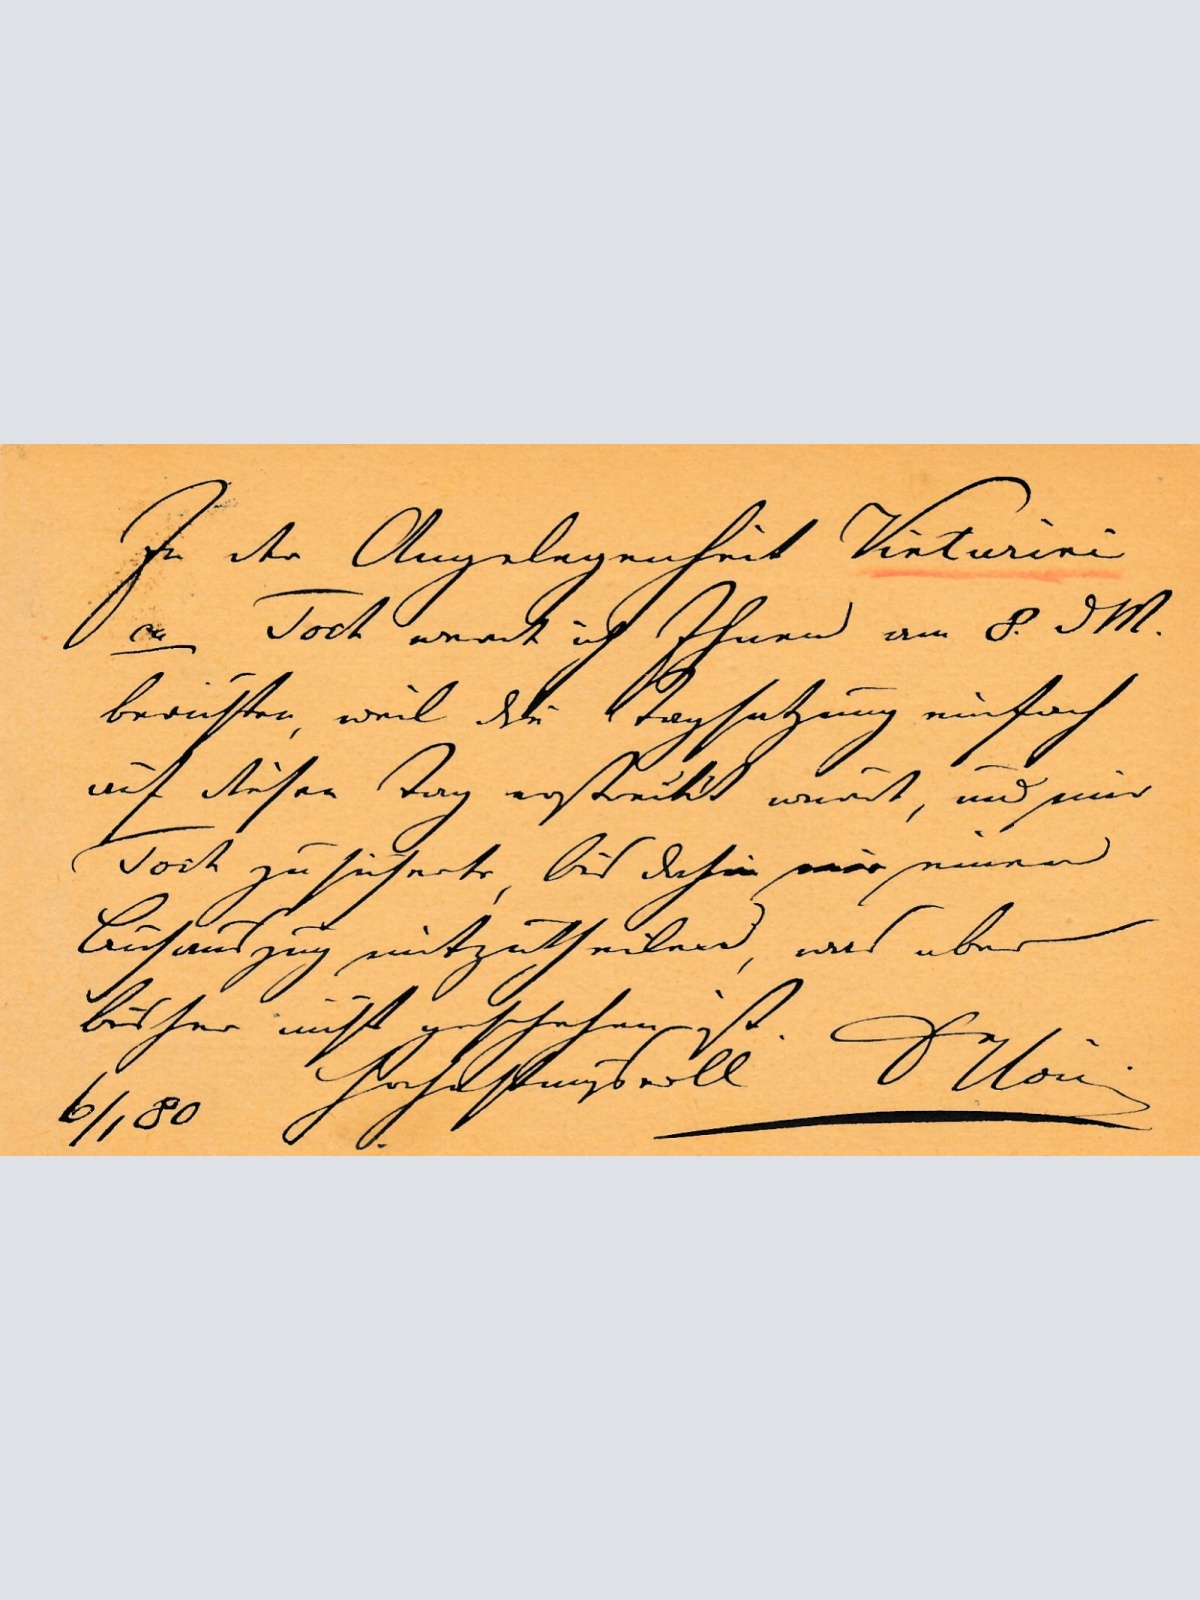 In der Angelegenheit Vinturini
ca Toch werde ich Ihnen am 8. d M.
berichten, weil die Tagsatzung einfach
auf diesen Tag erstreckt wurde, und mir
Toch zusicherte, bis dahin mir einen
Buchauszug mitzutheilen, was aber
bisher nicht geschehen ist.
Hochachtungsvoll Dr
6/1 80